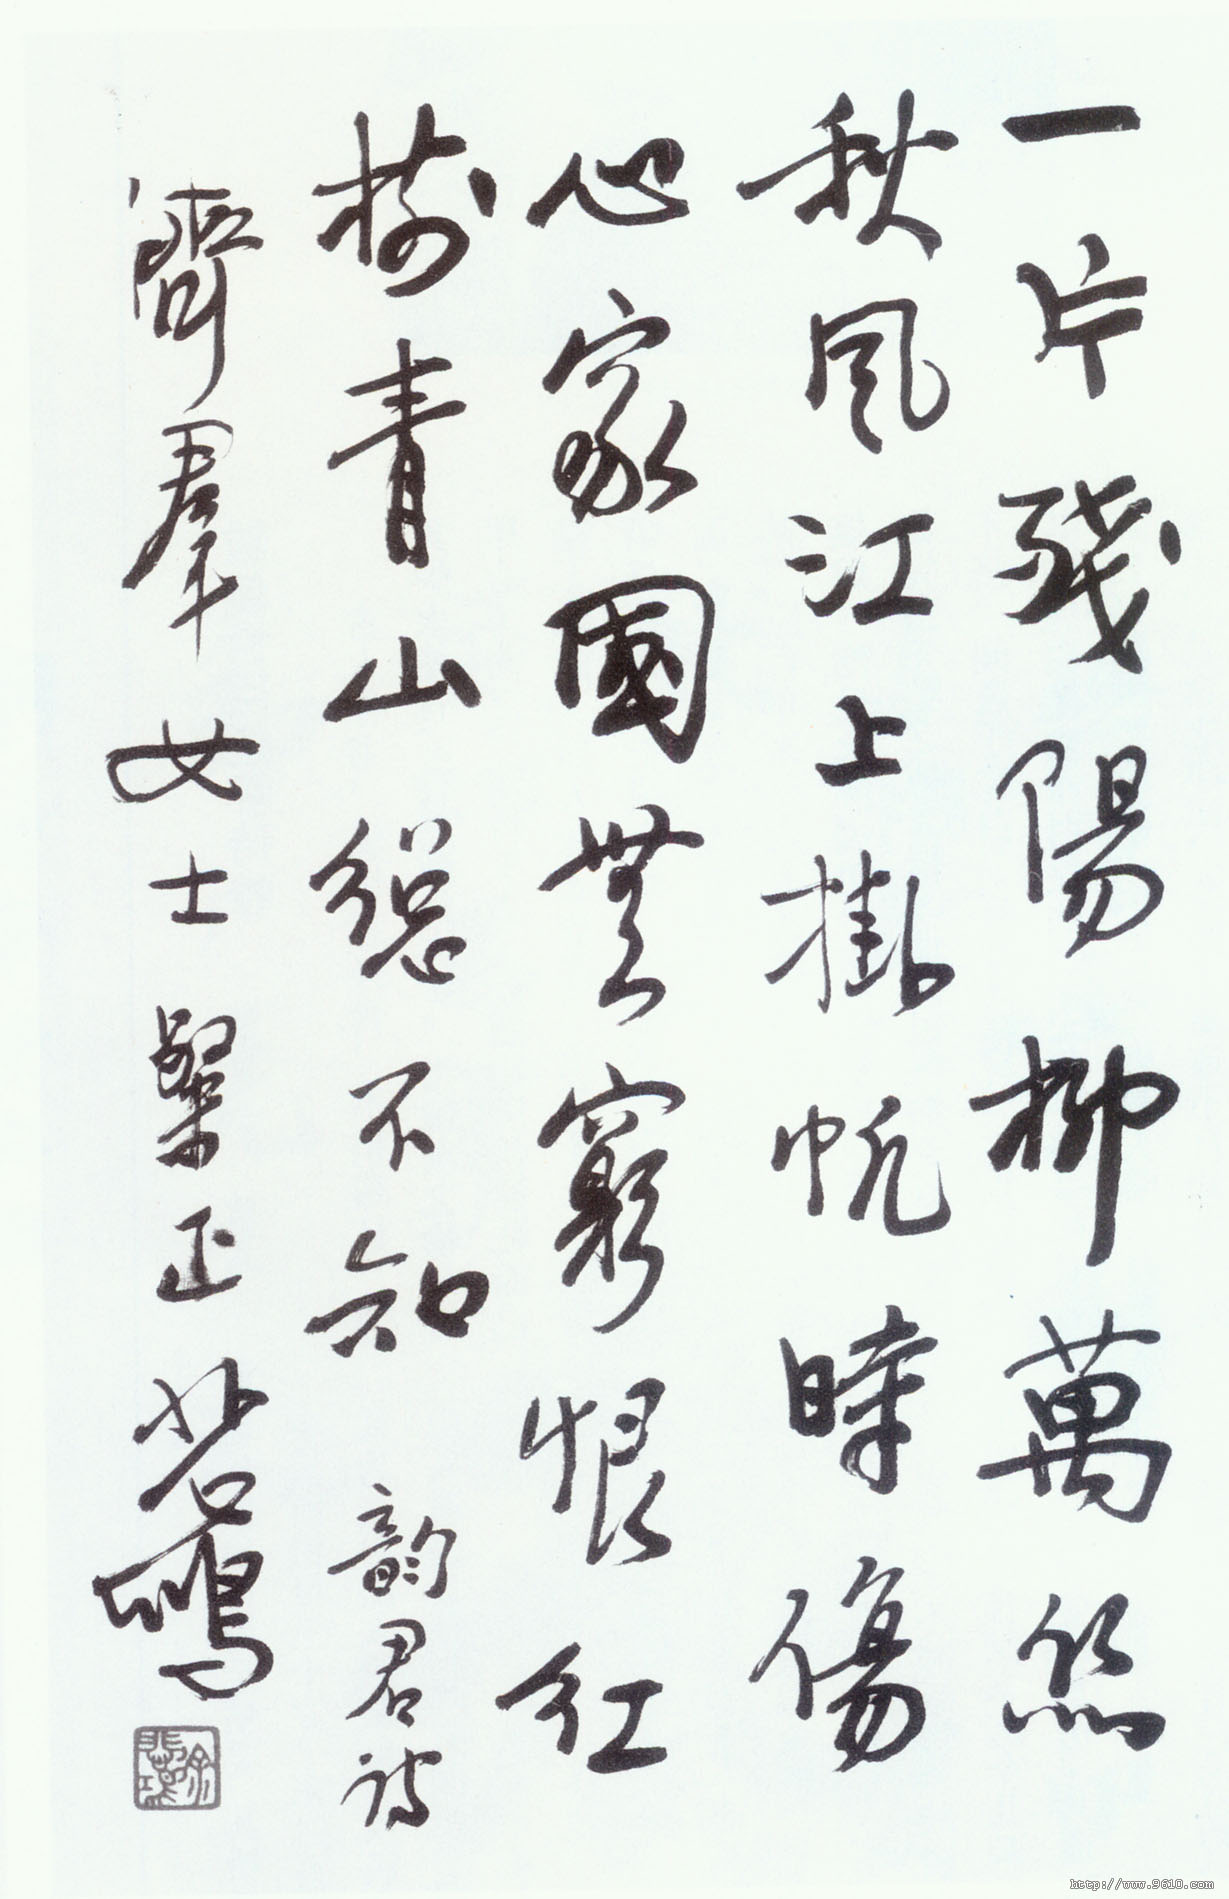 一片殘陽柳萬絲
秋風江上掛帆時傷
心家國無窮恨紅
樹青山總不知 韻君詩
濟羣女士粲正 悲鴻
徐悲鴻
http://www.9610.com